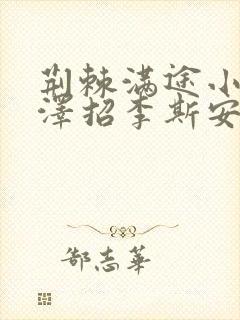 荆棘满途小
泽招李斯安
郜志华